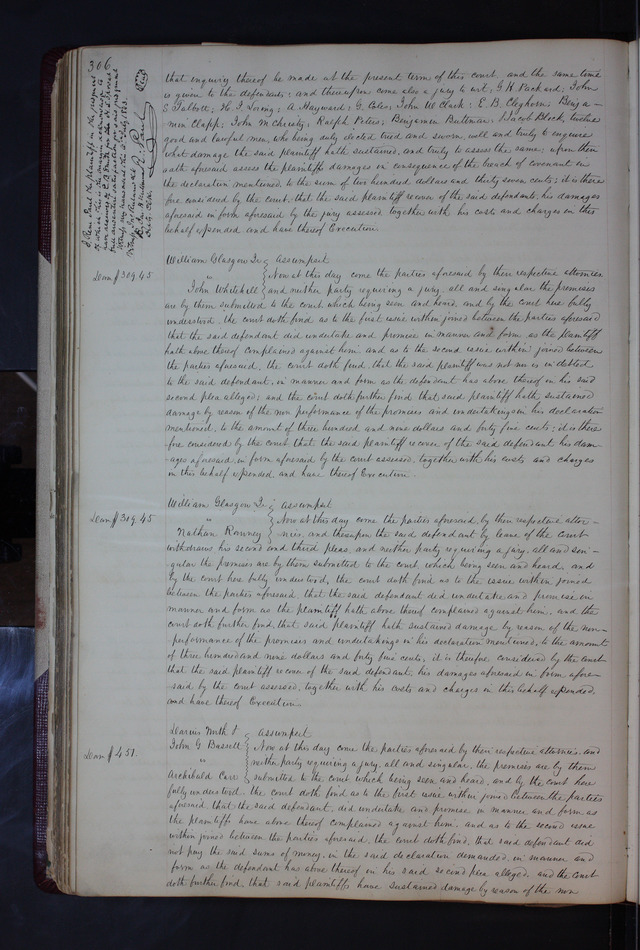 306
that inquiry thereof be made at the present term of this court, and the same time
is given to the defendants: and thereupon come also a jury to wit, G H Packard; John
S Talbott; H. Loring; A Hayward; G. Coles; John W Clark: E. B. Cleghorn Benja-
min Clapp; John McChristy; Ralph Peters; Benjamin Bateman & Jacob Block, twelve
good and lawful men, who being duly elected tried and sworn, well and truly to enquire
what damage the said plaintiff hath sustained, and truly to assess the same, upon their
oath aforesaid assess the plaintiffs damages in consequence of the breach of covenant in
the declaration mentioned to the sum of two hundred dollars and thirty seven cents; it is there
fore considered by the court, that the said plaintiff recover of the said defendants, his damages
aforesaid in form aforesaid by the jury assessed together with his costs and charges in this
behalf expended, and have thereof Execution.
William Glasgow Jr assumpsit
Dam $309.45
" Now at this day come the parties aforesaid by their respective attornies
John Whitehill and neither party requiring a jury, all and singular the premises
are by them submitted to the court which being seen and heard, and by the court here fully
understood, the court doth find as to the first issue within joined between the parties aforesaid
that the said defendant did undertake and promise in manner and form as the plaintiff
hath above thereof complained against him and as to the second issue within joined between
the parties aforesaid, the court doth find, that the said plaintiff was not nor is indebted
to the said defendant, in manner and form as the defendant has above thereof in his said
second plea alleged; and the court doth further find that said plaintiff hath sustained
damage by reason of the non performance of the promises and undertakings in his declaration
mentioned, to the amount of three hundred and nine dollars and forty five cents; it is there
fore considered by the court, that the said plaintiff recover of the said defendant his dam-
ages aforesaid in form aforesaid by the court assessed, together with his costs and charges
in this behalf expended, and have thereof Execution.
William Glasgow Jr assumpsit
Dam $309.45
" Now at this day come the parties aforesaid by their respective attor-
Nathan Ranney nies, and thereupon the said defendant by leave of the court
withdraws his second and third pleas, and neither party requiring a jury, all and sin-
gular the premises are by them submitted to the court, which being seen and heard, and
by the court here fully understood, the court doth find as to the issue within joined
between the parties aforesaid, that the said defendant did undertake and promise in
manner and form as the plaintiff hath above thereof complained against him, and the
court doth further find, that said plaintiff hath sustained damage by reason of the non-
performance of the promises and undertakings in his declaration mentioned, to the amount
of three hundred and nine dollars and forty five cents, it is therefore considered by the court
that the said plaintiff recover of the said defendant, his damages aforesaid in form afore-
said by the court assessed, together with his costs and charges in this behalf expended,
and have thereof Execution.
assumpsit
Dam $451.
John G Bussell Now at this day come the parties aforesaid by their respective attornies, and
" neither party requiring a jury, all and singular, the premises are by them
Archibald Carr submitted to the court which being seen and heard, and by the court here
fully understood, the court doth find as to the first issue within joined between the parties
aforesaid, that the said defendant, did undertake and promise in manner and form as
the plaintiffs have above thereof complained against him, and as to the second issue
within joined between the parties aforesaid, the court doth find, that said defendant did
not pay the said sums of money, in the said declaration demanded, in manner and
form as the defendant has above thereof in his said second plea alleged, and the court
doth further find, that said plaintiffs have sustained damage by reason of the non